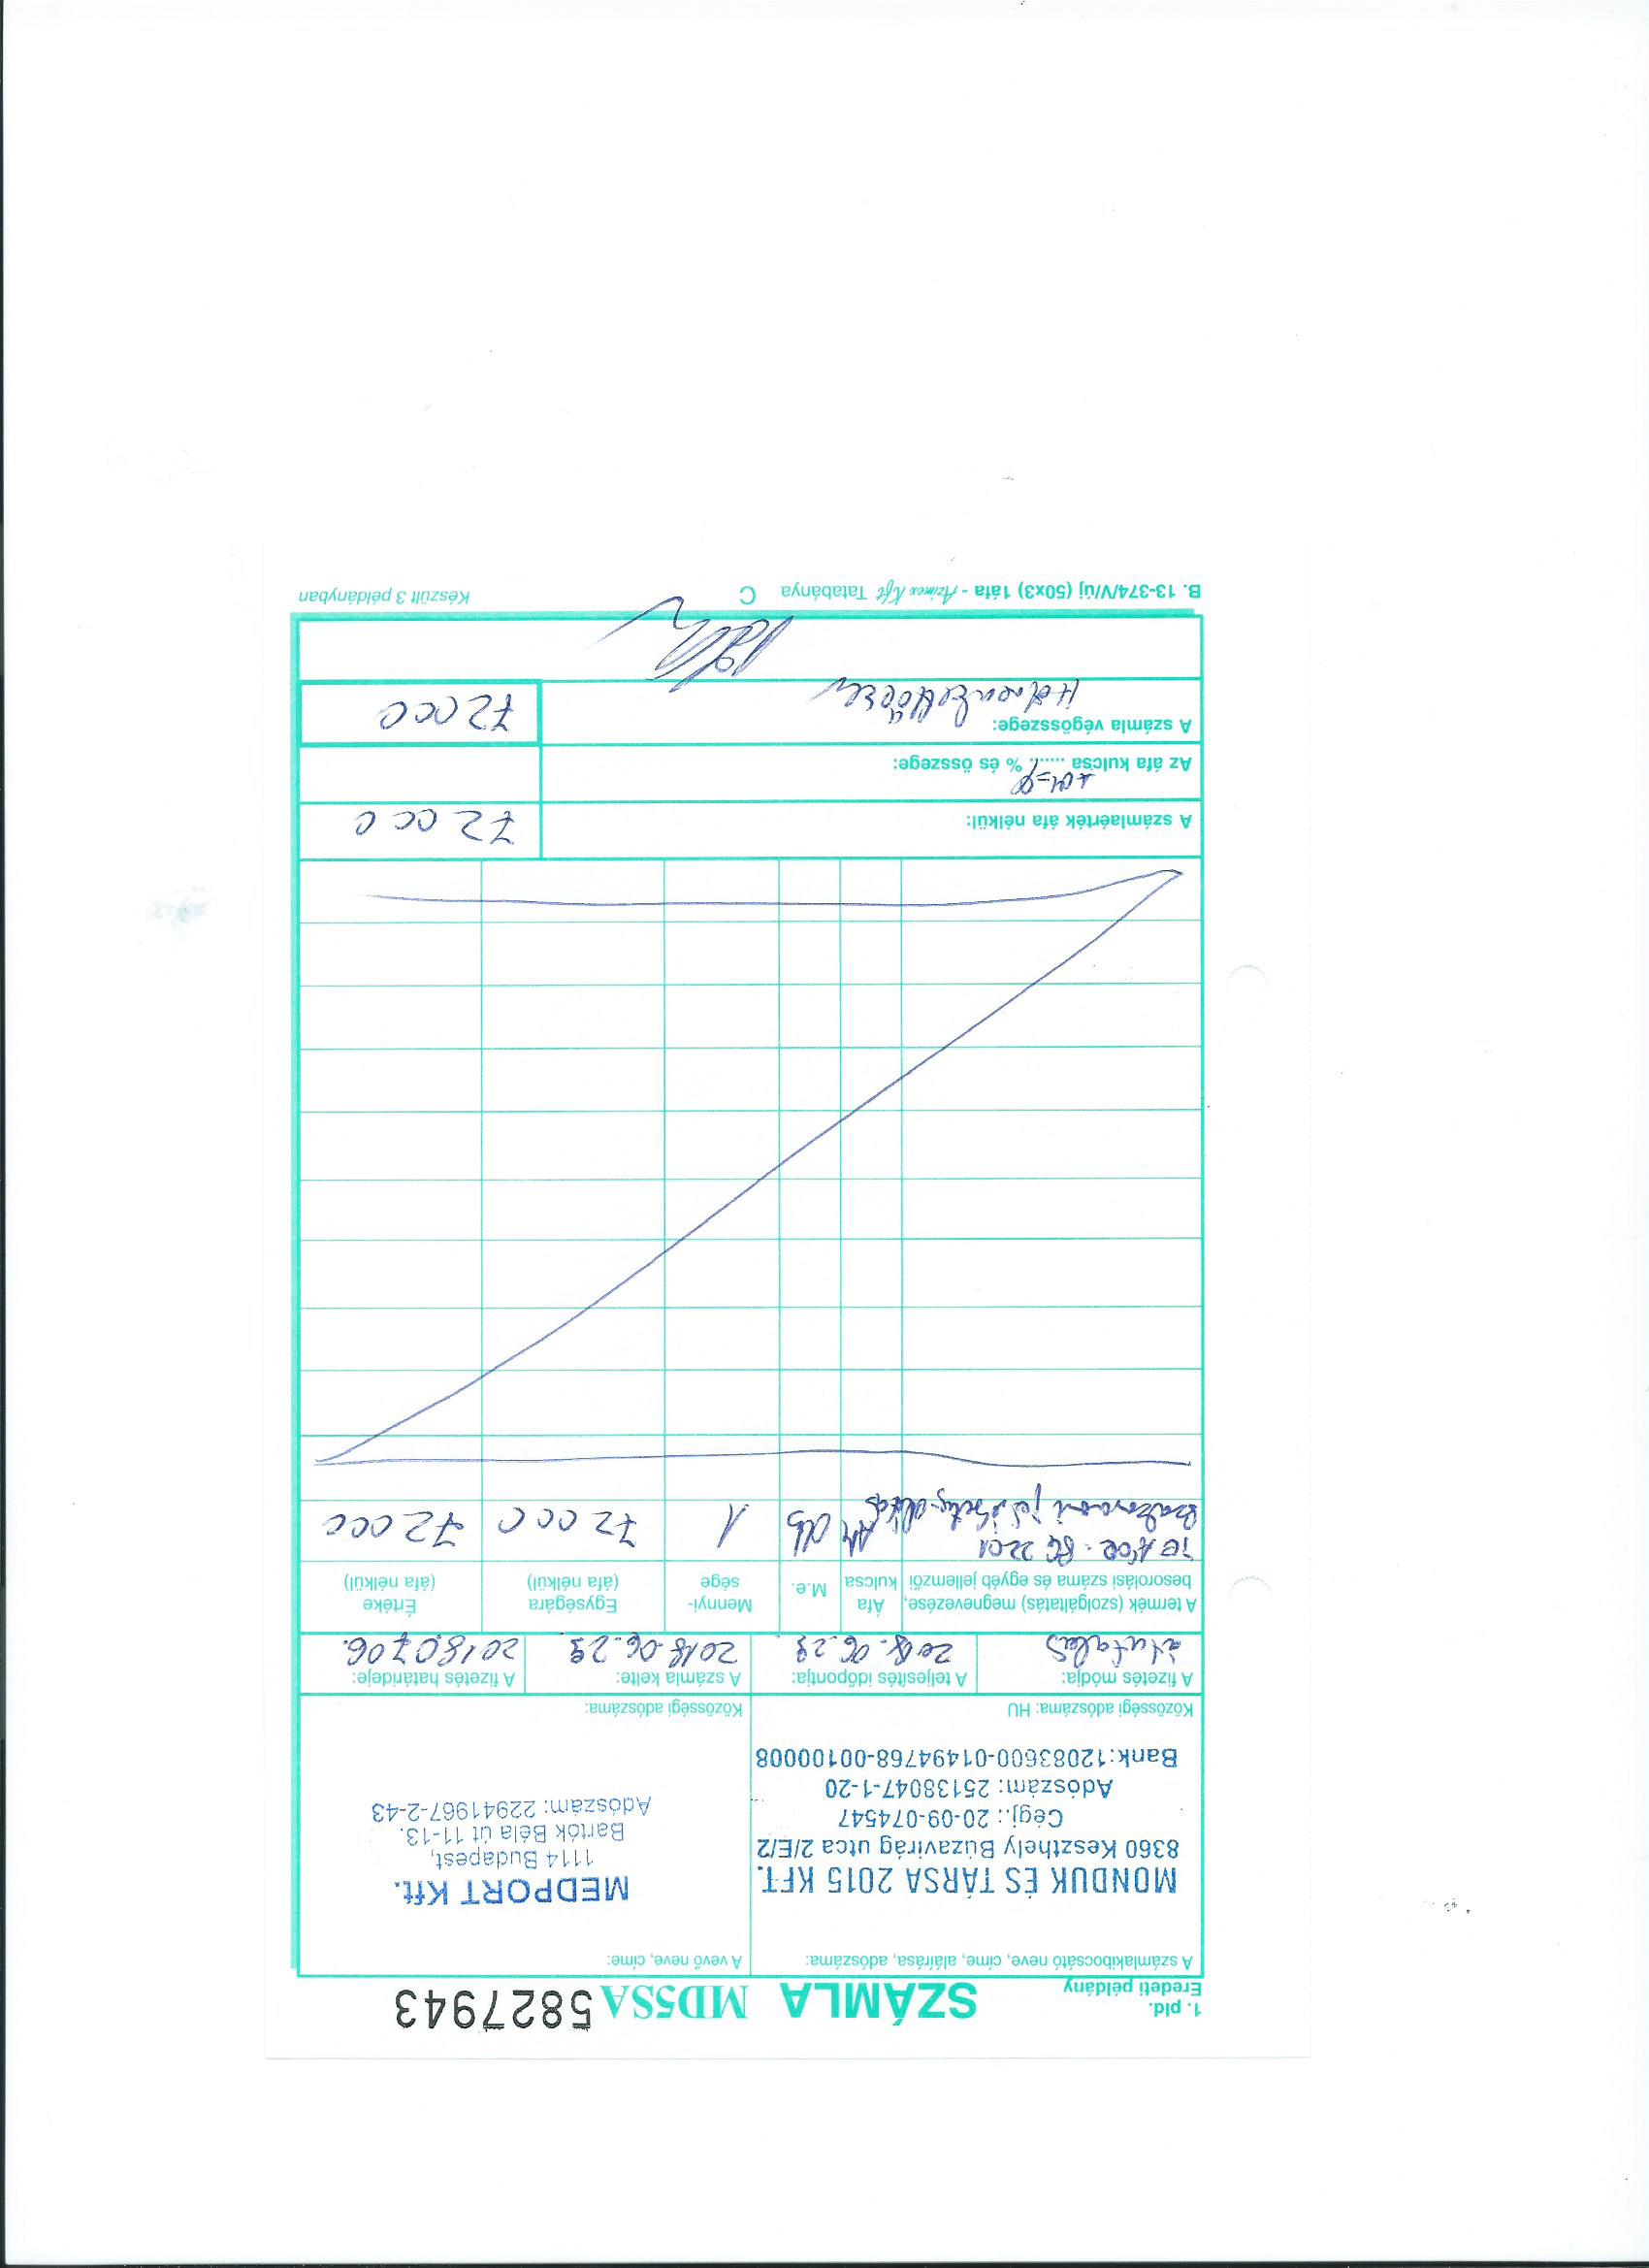 1. pld.
Eredeti példány
SZÁMLA MD5SA 5827943
A számlakibocsátó neve, címe, aláírása, adószáma:
MONDUK ÉS TÁRSA 2015 KFT.
8360 Keszthely Búzavirág utca 2/E/2
Cégj.: 20-09-074547
Adószám: 25138047-1-20
Bank:12083600-01494768-00100008
Közösségi adószáma: HU
A vevő neve, címe:
MEDPORT Kft.
1114 Budapest,
Bartók Béla út 11-13.
Adószám: 22941967-2-43
Közösségi adószáma:
A fizetés módja: A teljesítés időpontja: A számla kelte: A fizetés határideje:
átutalás 2018.06.29. 2018.06.29 20180706.
A termék (szolgáltatás) megnevezése, besorolási száma és egyéb jellemzői
Áfa kulcsa
M.e.
Mennyi-sége
Egységára (áfa nélkül)
Értéke (áfa nélkül)
db 1 72000 72000
A számlaérték áfa nélkül: 72000
Az áfa kulcsa ...... % és összege:
A számla végösszege: 72000
Hetvenkettőezer
B. 13-374/V/új (50x3) 1áfa - Azimex Kft Tatabánya C
Készült 3 példányban